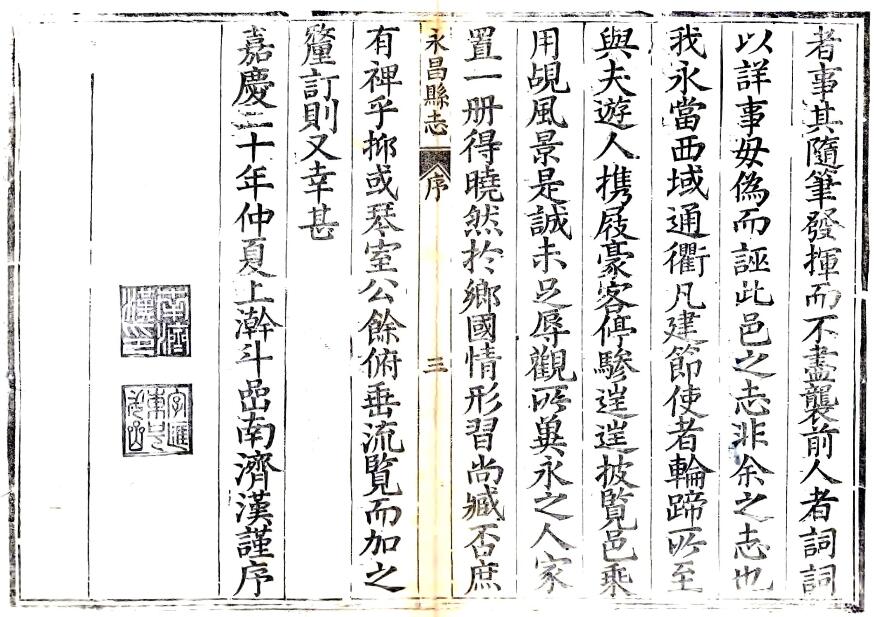 者事其隨筆發揮而不盡襲前人者詞詞
以詳事毋僞而誣此邑之志非余之志也
我永當西域通衢凡建節使者輪蹄所至
與夫遊人擕屐豪客停驂逞逞披覽邑乘
用覘風景是誠未足辱觀所兾永之人家
置一册得曉然扵鄉國情形習尚臧否庶
永昌縣志
序
三
有裨乎抑或琴室公餘俯垂流覧而加之
釐訂則又幸甚
嘉慶二十年仲夏上澣斗嵒南濟漢謹序
南濟漢印
字匯東